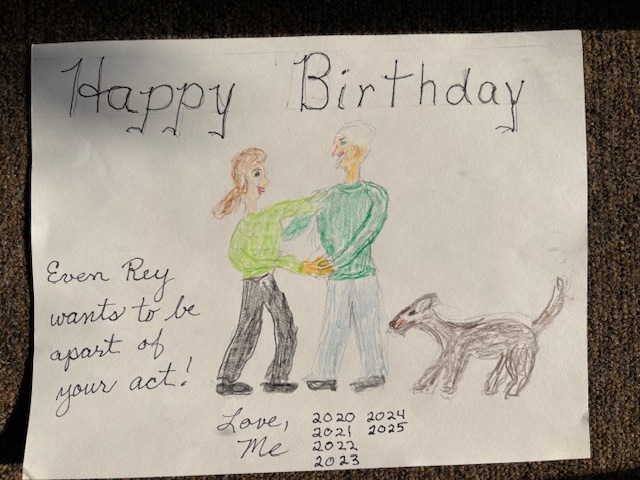 Happy Birthday
Even Rey
wants to be
apart of
your act!
Love,
Me
2020 2024
2021 2025
2022
2023